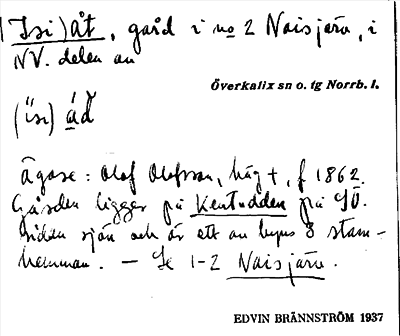 Isi)åt, gård i no 2 Naisjärv, i
NV. delen av
Överkalix sn o. tg Norrb. l.
(isi) åd
Ägare: Olof Olofsson, häg+, f 1862.
Gården ligger på Kentudden på SÖ.
sidan sjön och är ett av byns 8 stam-
hemman. – Se 1–2 Naisjärv.
EDVIN BRÄNNSTRÖM 1937